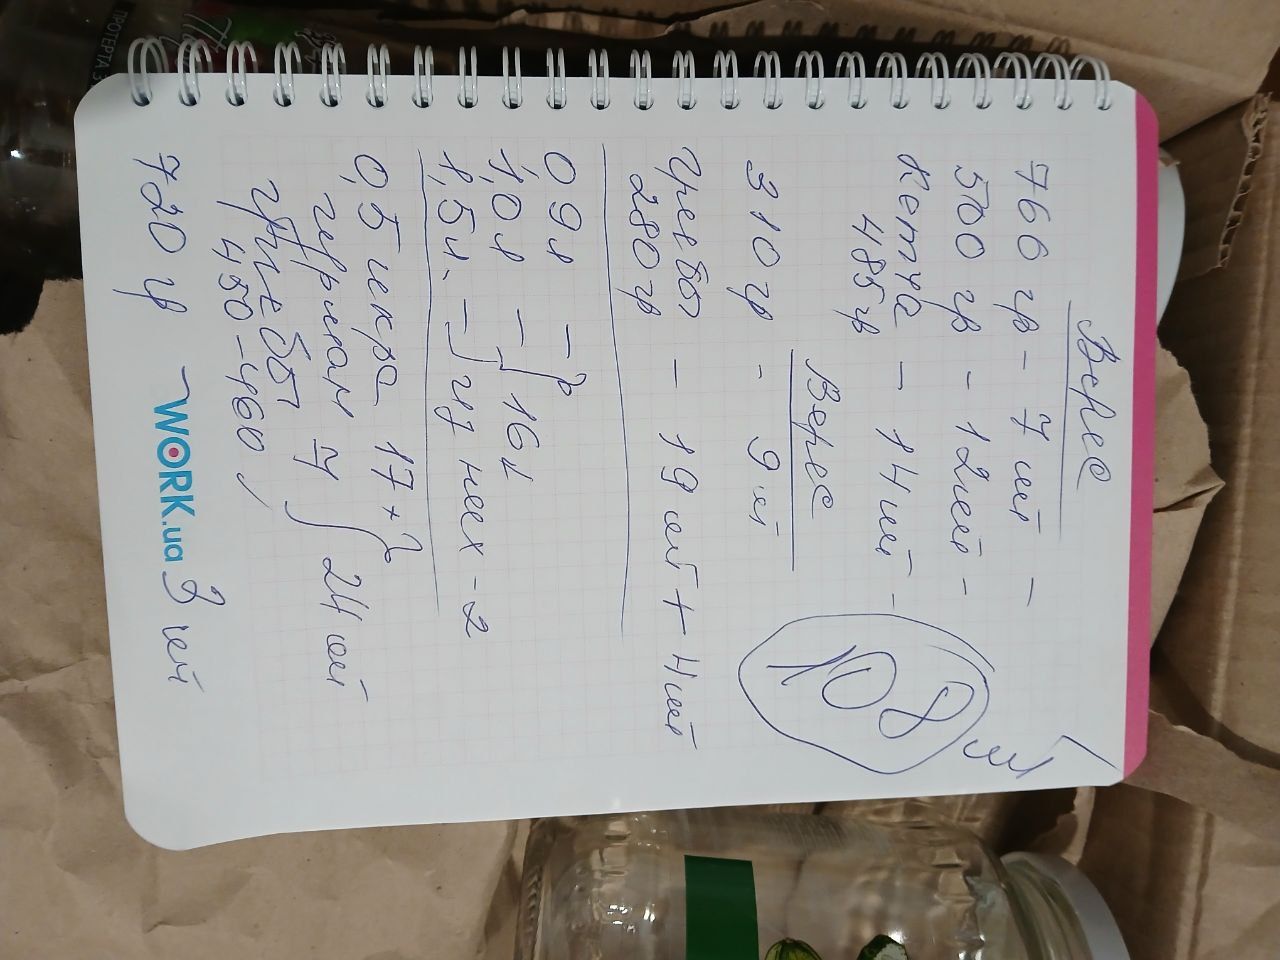 Верес
766 гр - 7 шт -
500 гр - 12 шт -
Кетчуп - 14 шт -
485 гр
108 шт
Верес
310 гр - 9 шт
280 гр - 19 шт + 4 шт
0,9 л -
1,0 л - 16 л
1,5 л. - из них - 2
0,5 икра 17 +
24 шт
450-460
720 гр
3 шт
WORK.ua
ПРОТЕРТА З